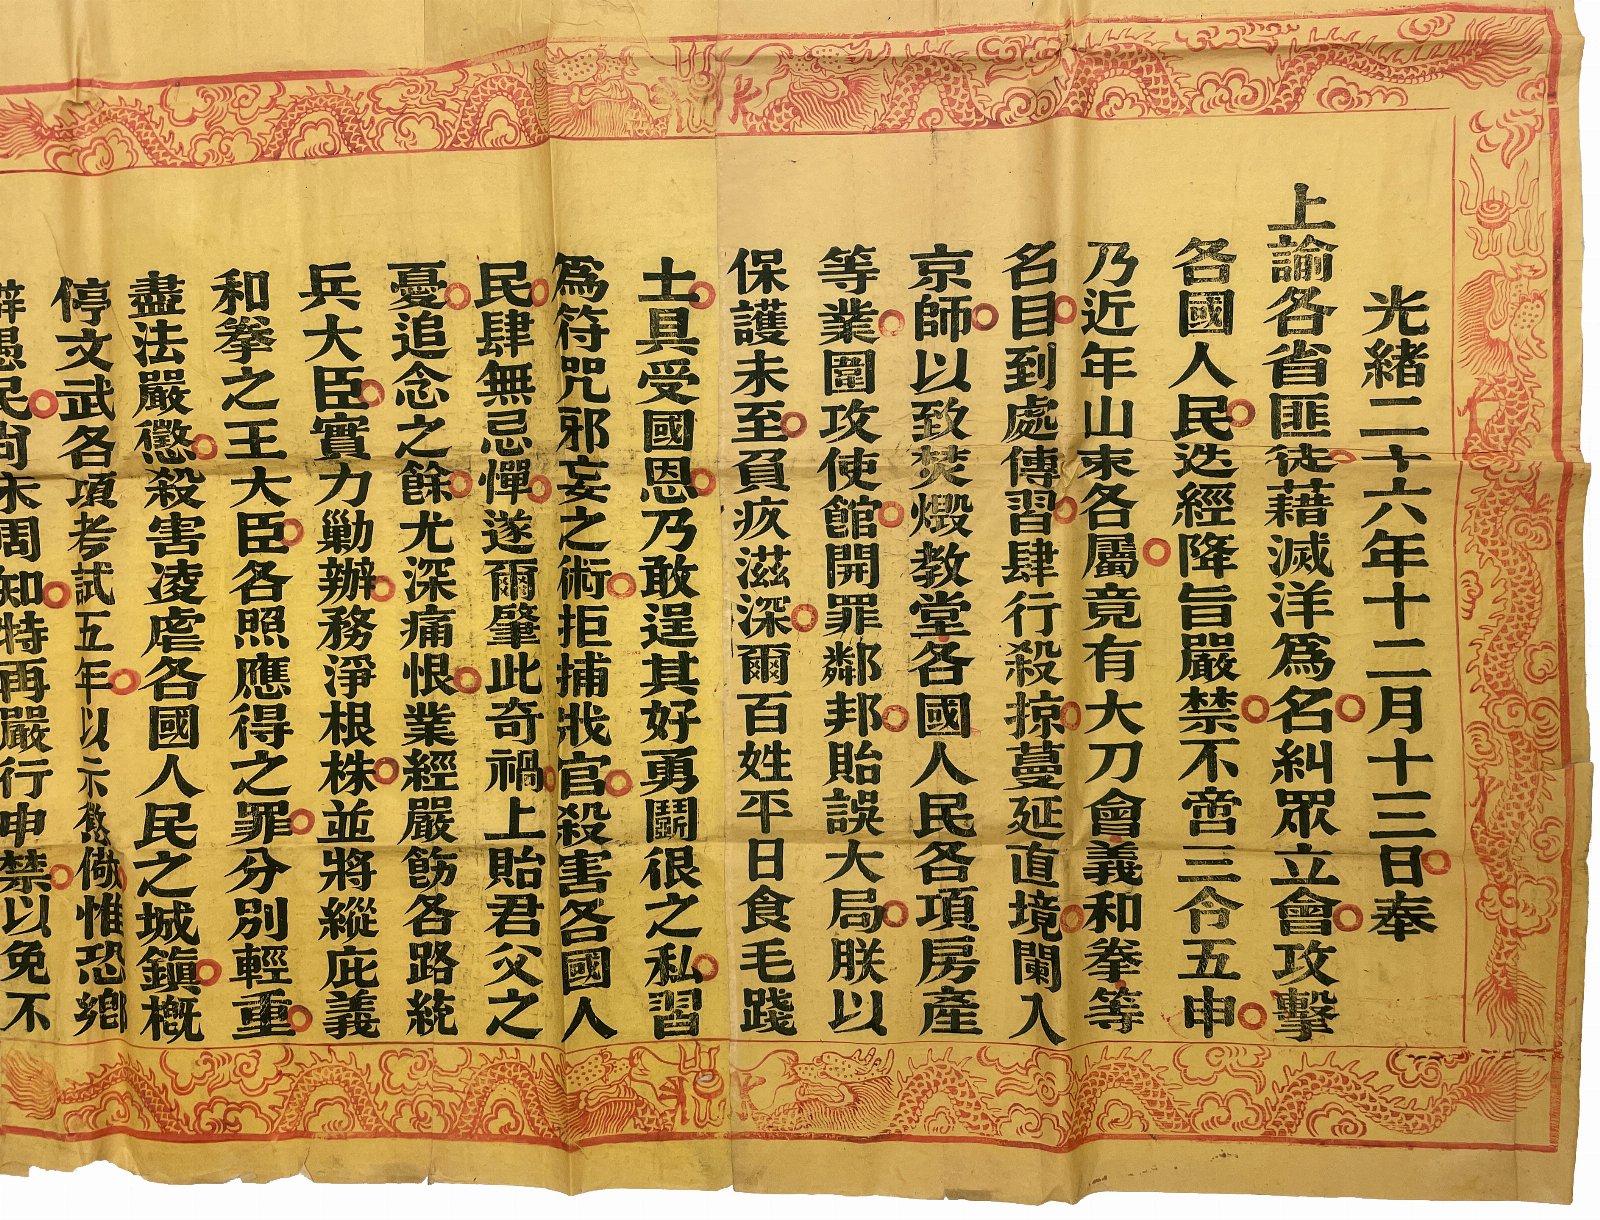 光緒二十六年十二月十三日奉
上諭各省匪徒藉滅洋爲名糾眾立會攻擊
各國人民迭經降旨嚴禁不啻三令五申
乃近年山東各屬竟有大刀會義和拳等
名目到處傳習肆行殺掠蔓延直境闌入
京師以致焚燬教堂各國人民各項房產
等業圍攻使館開罪鄰邦貽誤大局朕以
保護未至負疚滋深爾百姓平日食毛踐
土具受國恩乃敢逞其好勇鬬很之私習
爲符咒邪妄之術拒捕戕官殺害各國人
民肆無忌憚遂爾肇此奇禍上貽君父之
憂追念之餘尤深痛恨業經嚴飭各路統
兵大臣實力勦辦務淨根株並將縱庇義
和拳之王大臣各照應得之罪分別輕重
盡法嚴懲殺害凌虐各國人民之城鎮概
停文武各項考試五年以示懲儆惟恐鄉
僻愚民尚未周知特再嚴行申禁以免不